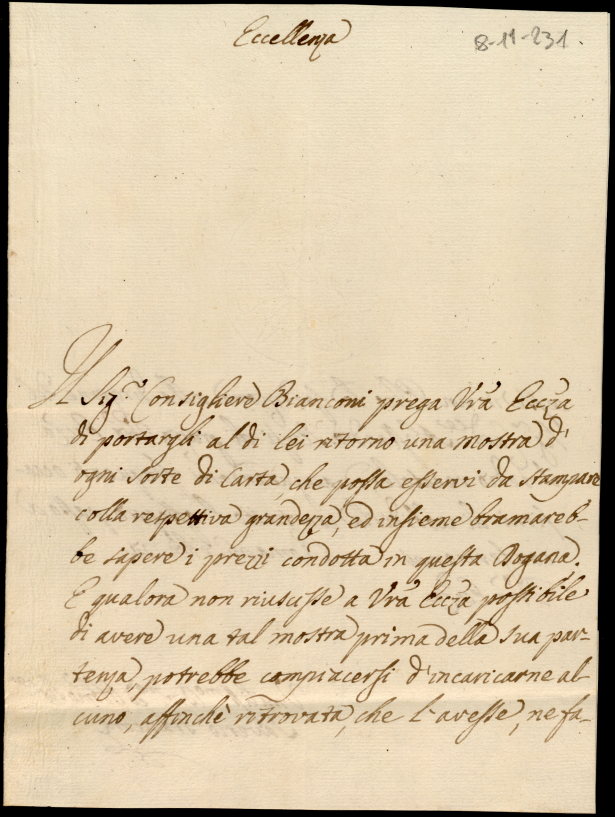 Eccellenza
8-11-231.
Il Sig.r Consigliere Bianconi prega Vrã Eccza
di portargli al di lei ritorno una mostra d'
ogni sorte di Carta, che possa esservi da stampare
colla respettiva grandezza, ed insieme bramareb-
be sapere i prezzi condotta in questa Dogana.
E qualora non riuscisse a Vrã Eccza possibile
di avere una tal mostra prima della sua par-
tenza, potrebbe compiacersi d'incaricarne al-
cuno, affinchè ritrovata, che l'avesse, ne fa-